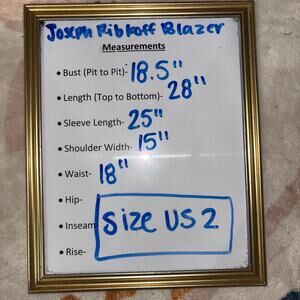 Joseph Ribkoff Blazer
Measurements
• Bust (Pit to Pit)- 18.5"
• Length (Top to Bottom)- 28"
• Sleeve Length- 25"
• Shoulder Width- 15"
• Waist- 18"
• Hip-
• Inseam
• Rise-
Size US 2